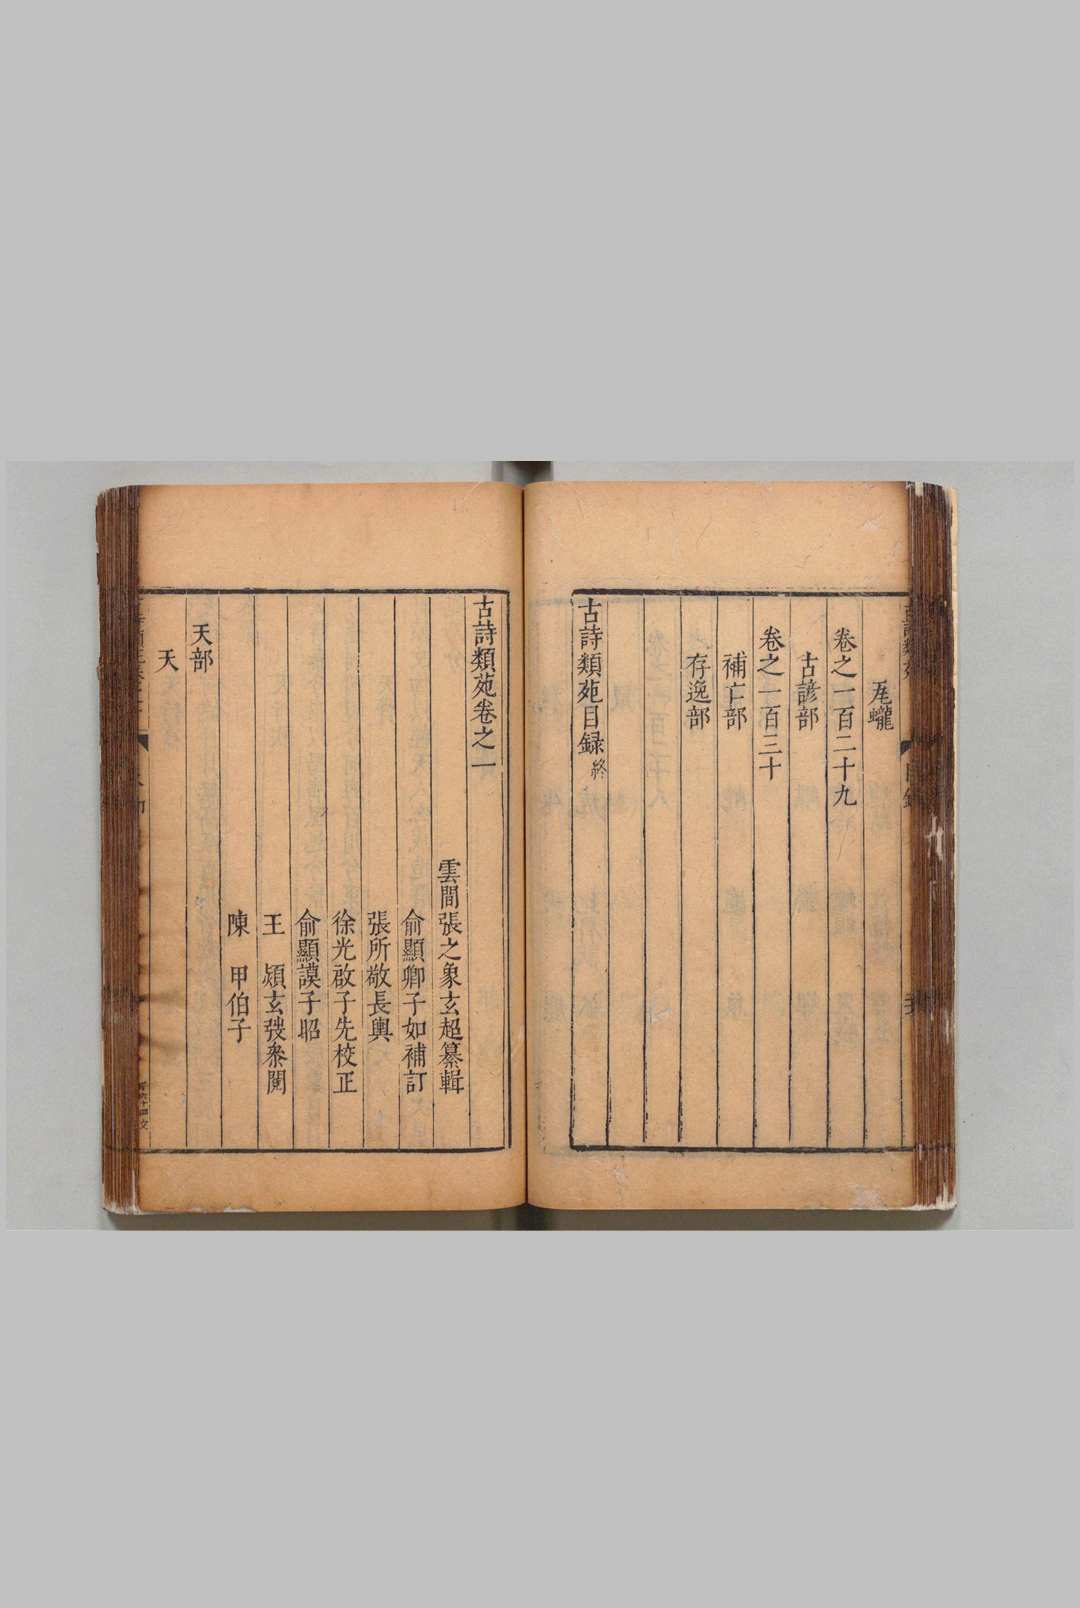 卷之一百二十九
古諺部
卷之一百三十
補亡部
存逸部
古詩類苑目録終
古詩類苑卷之一
雲間張之象玄超纂輯
俞顯卿子如補訂
張所敬長輿
徐光啟子先校正
俞顯謨子昭
王 熲玄弢叅閱
陳 甲伯子
天部
天